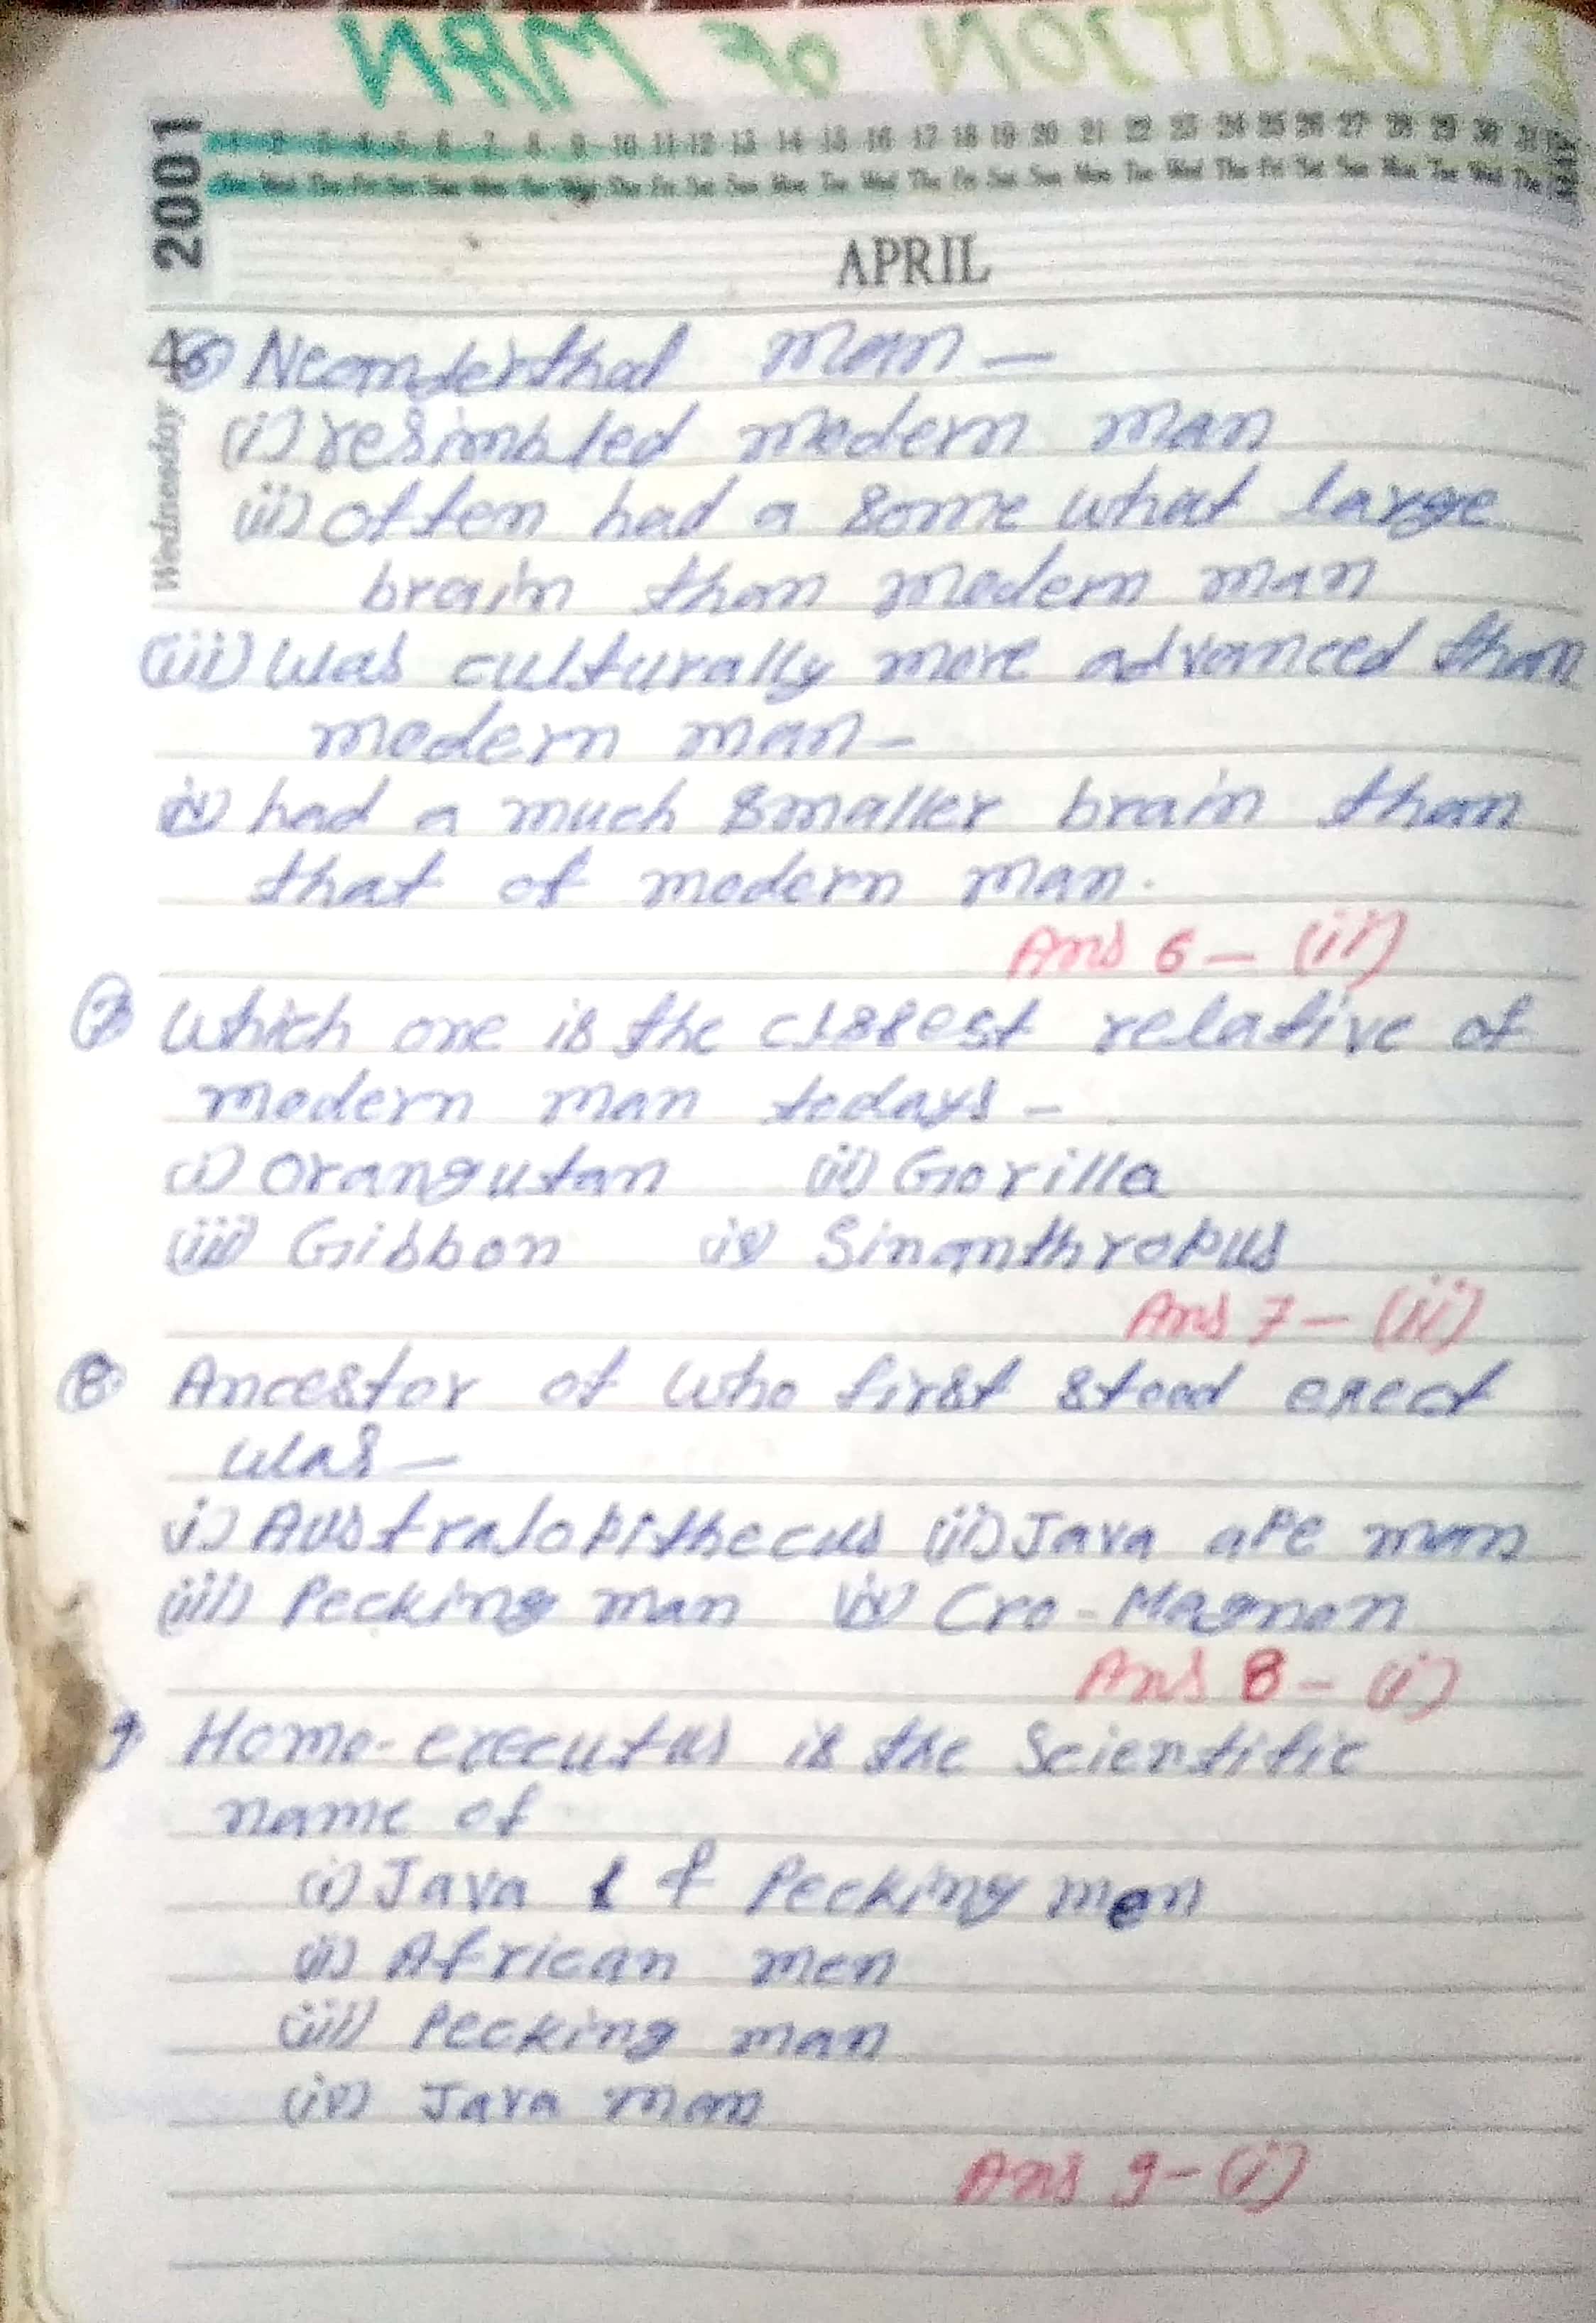 EVOLUTION OF MAN
2001
1 2 3 4 5 6 7 8 9 10 11 12 13 14 15 16 17 18 19 20 21 22 23 24 25 26 27 28 29 30 31 MAY
APRIL
Wednesday 4
6) Neamderthal man —
(i) resimbled modern man
(ii) often had a some what large
brain than modern man
(iii) was culturally more advanced than
modern man —
iv) had a much smaller brain than
that of modern man.
Ans 6 — (ii)
7) Which one is the closest relative of
modern man todays —
(i) Orangustan (ii) Gorilla
(iii) Gibbon (iv) Sinanthropus
Ans 7 — (ii)
8) Ancestor of who first stood erect
was —
(i) Australopithecus (ii) Java ape man
(iii) Pecking man (iv) Cro-Magnon
Ans 8 — (i)
9 Homo-erecutus is the Scientific
name of
(i) Java & Pecking men
(ii) African men
(iii) Pecking man
(iv) Java man
Ans 9 — (i)